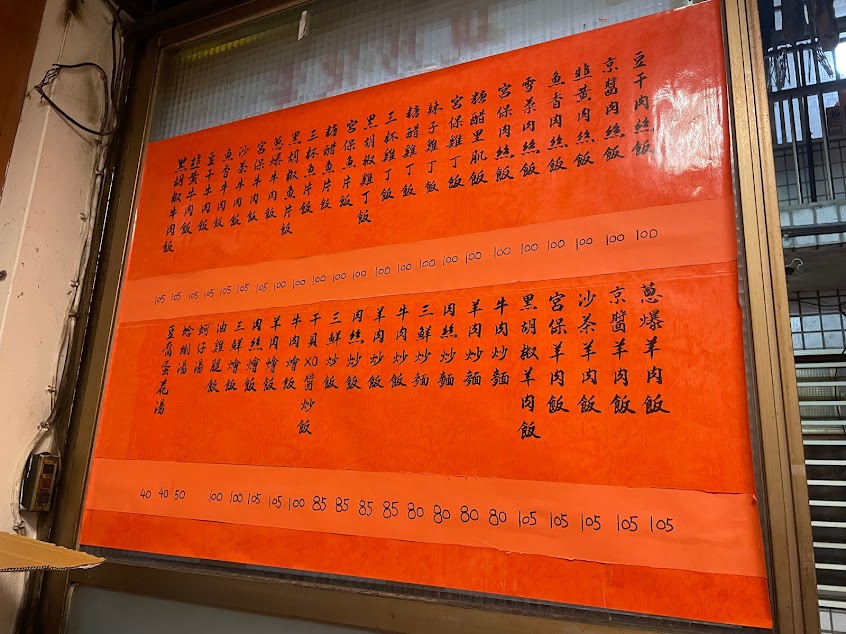 豆干肉絲飯
京醬肉絲飯
韭黃肉絲飯
魚香肉絲飯
雪菜肉絲飯
宮保肉絲飯
糖醋里肌飯
宮保雞丁飯
辣子雞丁飯
糖醋雞丁飯
三杯雞丁飯
黑胡椒雞丁飯
宮保魚片飯
糖醋魚片飯
三杯魚片飯
黑胡椒魚片飯
蔥爆牛肉飯
宮保牛肉飯
沙茶牛肉飯
魚香牛肉飯
豆干牛肉飯
韭黃牛肉飯
黑胡椒牛肉飯
105 105 105 105 105 105 100 100 100 100 100 100 100 100 100 100 100 100 100 100 100 100
蔥爆羊肉飯
京醬羊肉飯
沙茶羊肉飯
宮保羊肉飯
黑胡椒羊肉飯
牛肉炒麵
羊肉炒麵
肉絲炒麵
三鮮炒麵
牛肉炒飯
羊肉炒飯
肉絲炒飯
三鮮炒飯
干貝XO醬炒飯
牛肉燴飯
羊肉燴飯
肉絲燴飯
三鮮燴飯
油雞腿飯
蚵仔湯
蛤蜊湯
豆腐蛋花湯
40 40 50 100 100 105 105 100 85 85 85 85 80 80 80 80 105 105 105 105 105